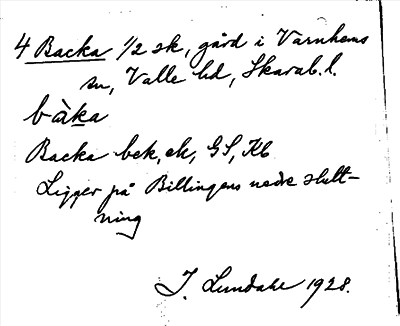 4 Backa 1/2 sk, gård i Varnhems
sn, Valle hd, Skarab. l.
bàka
Backa bek, ek, GS, Kb
Ligger på Billingens nedre slutt-
ning
I. Lundahl 1928.